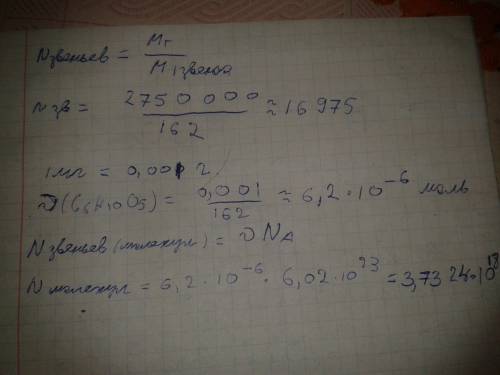 Nзвеньев = Mr / M1звена
nзв = 2750 000 / 162 ≈ 16 975
1мг = 0,001 г.
ν(C6H10O5) = 0,001 / 162 ≈ 6,2 · 10^-6 моль
Nзвеньев (молекул) = ν NA
Nмолекул = 6,2 · 10^-6 · 6,02 · 10^23 = 3,73 24·10^18